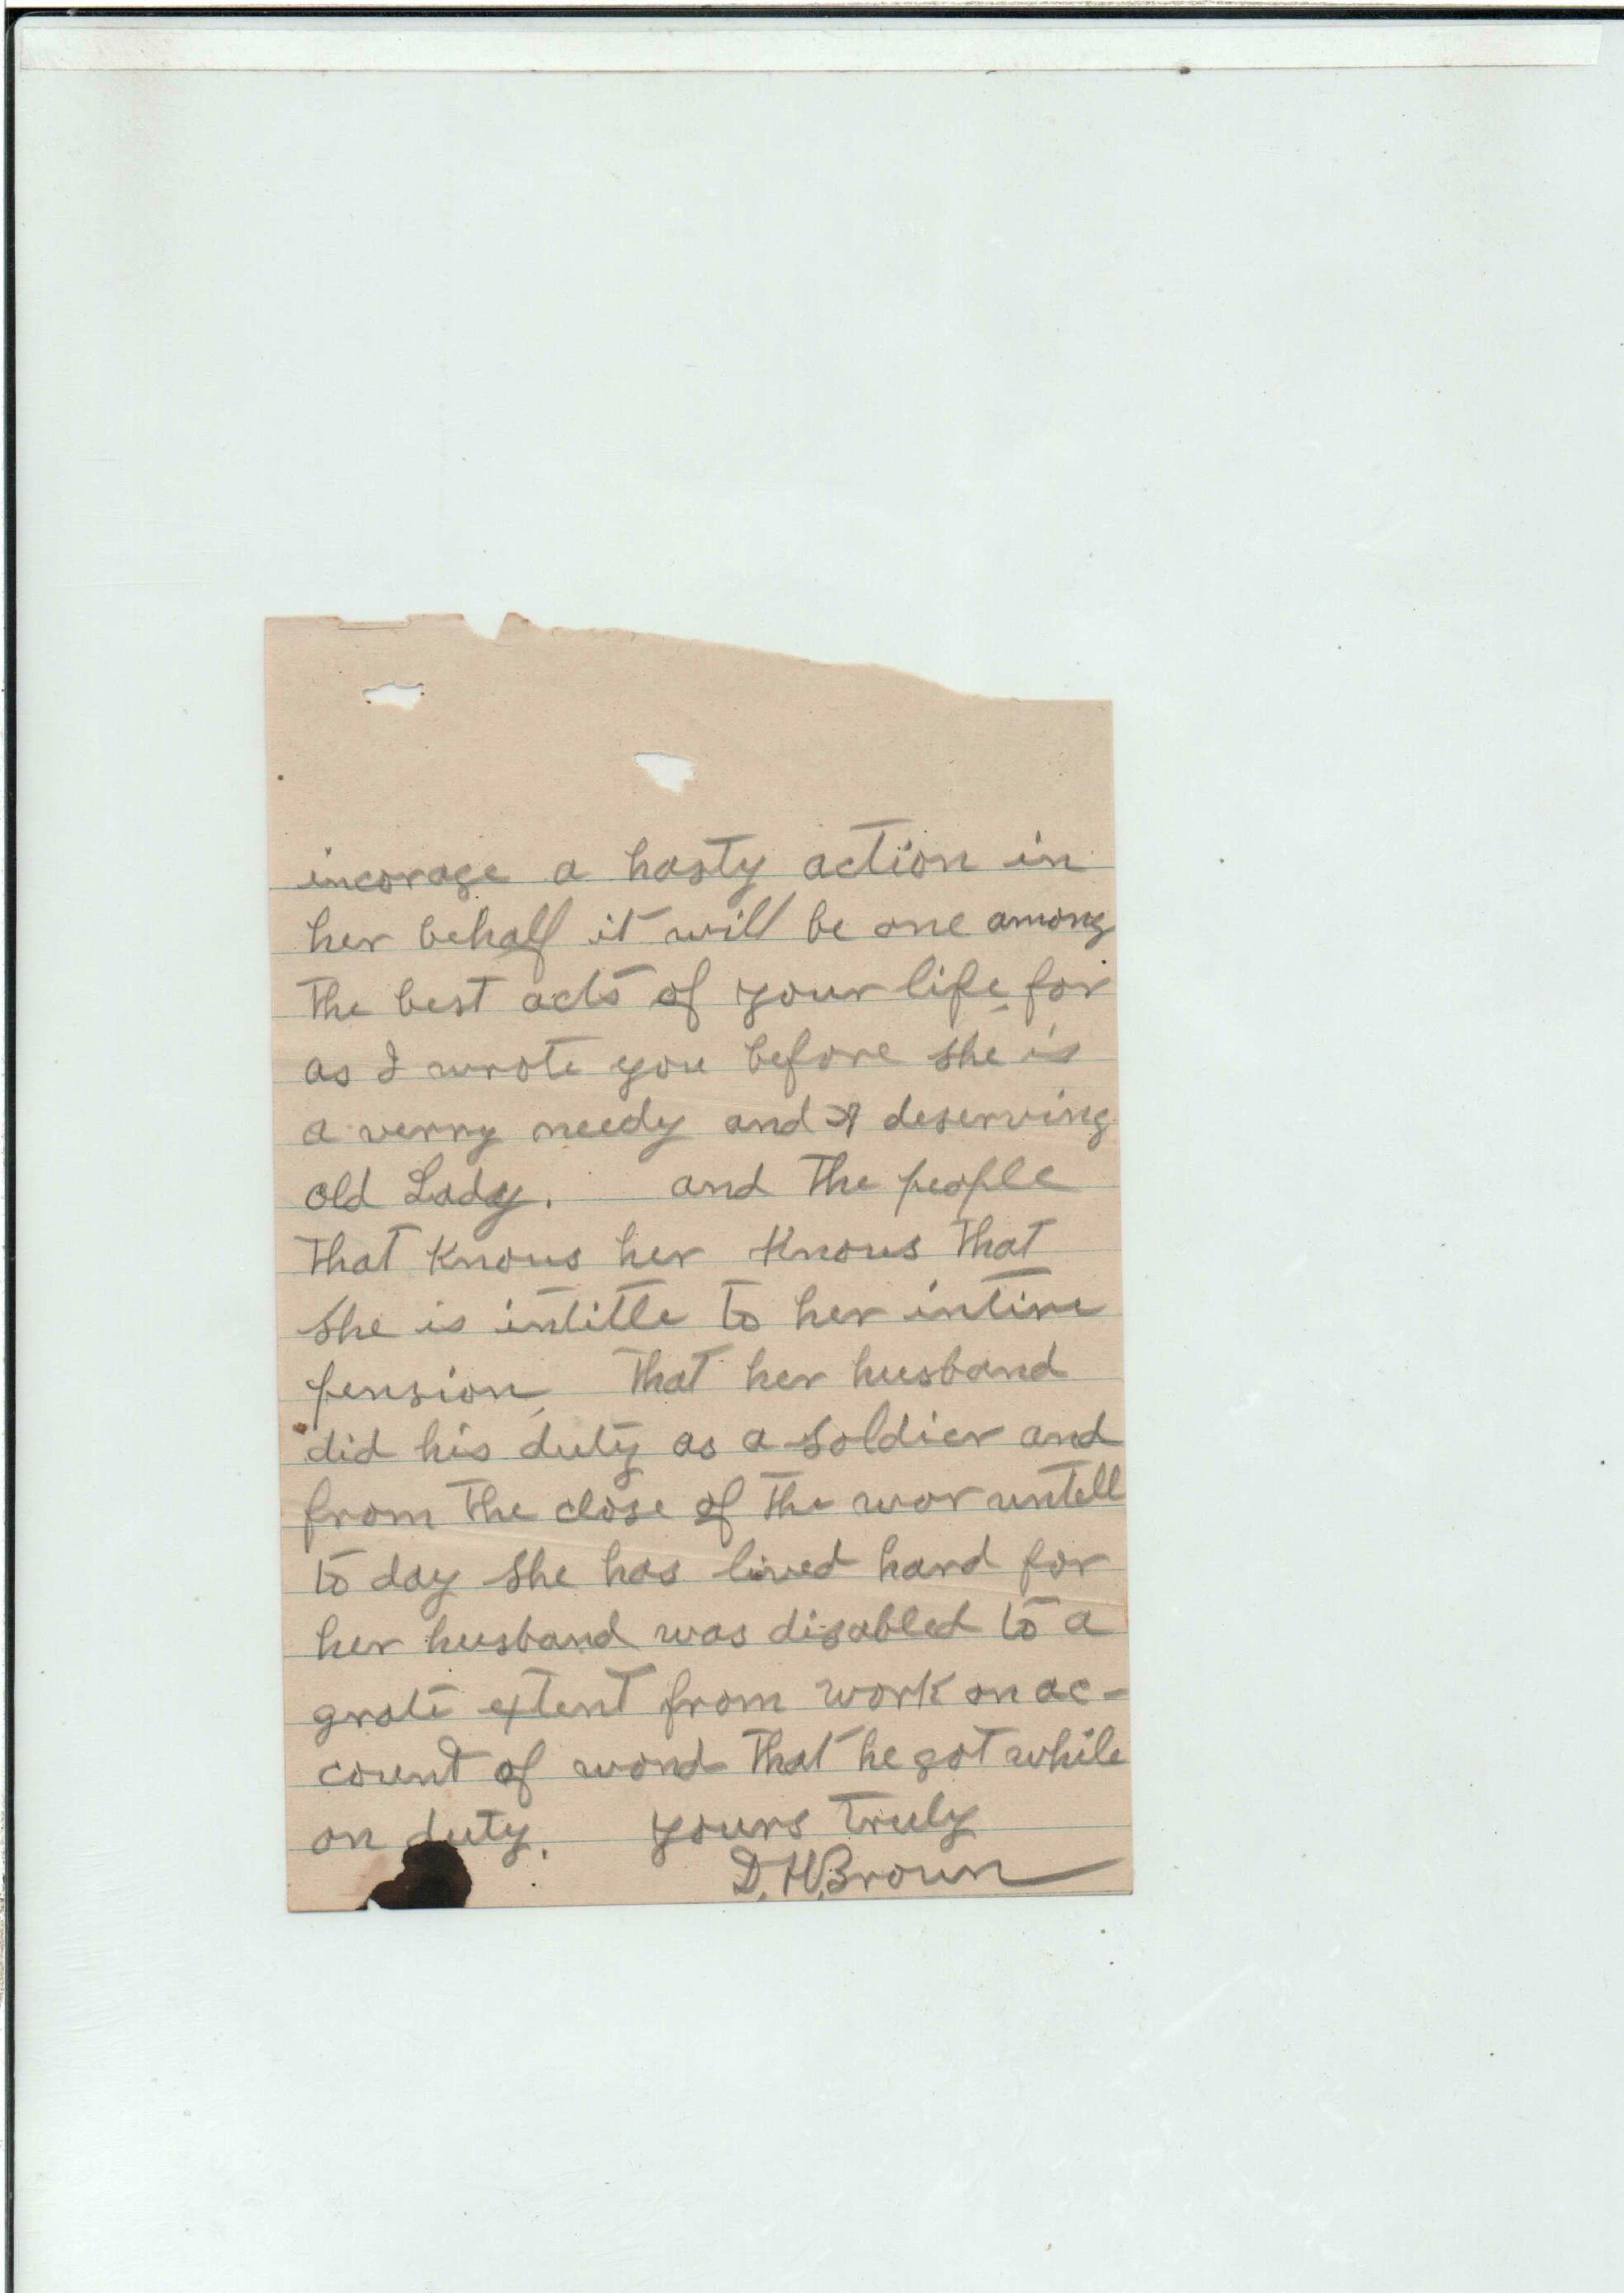 incorage a hasty action in
her behalf it will be one among
the best acts of your life for
as I wrote you before she is
a verry needy and deserving
old Lady. and the people
that knows her knows that
she is intitle to her intire
pension, that her husband
did his duty as a soldier and
from the close of the wor untell
to day she has lived hard for
her husband was disabled to a
grate extent from work on ac-
count of wond that he got while
on duty. yours truly
D. H. Brown